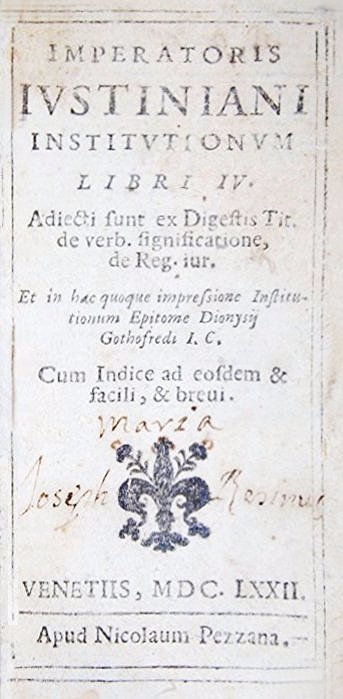 IMPERATORIS
IVSTINIANI
INSTITVTIONVM
LIBRI IV.
Adiecti sunt ex Digestis Tit.
de verb. significatione,
de Reg. iur.
Et in hac quoque impressione Institu-
tionum Epitome Dionysij
Gothofredi I. C.
Cum Indice ad eosdem &
facili, & breui.
Maria
Joseph
VENETIIS, MDC. LXXII.
Apud Nicolaum Pezzana.